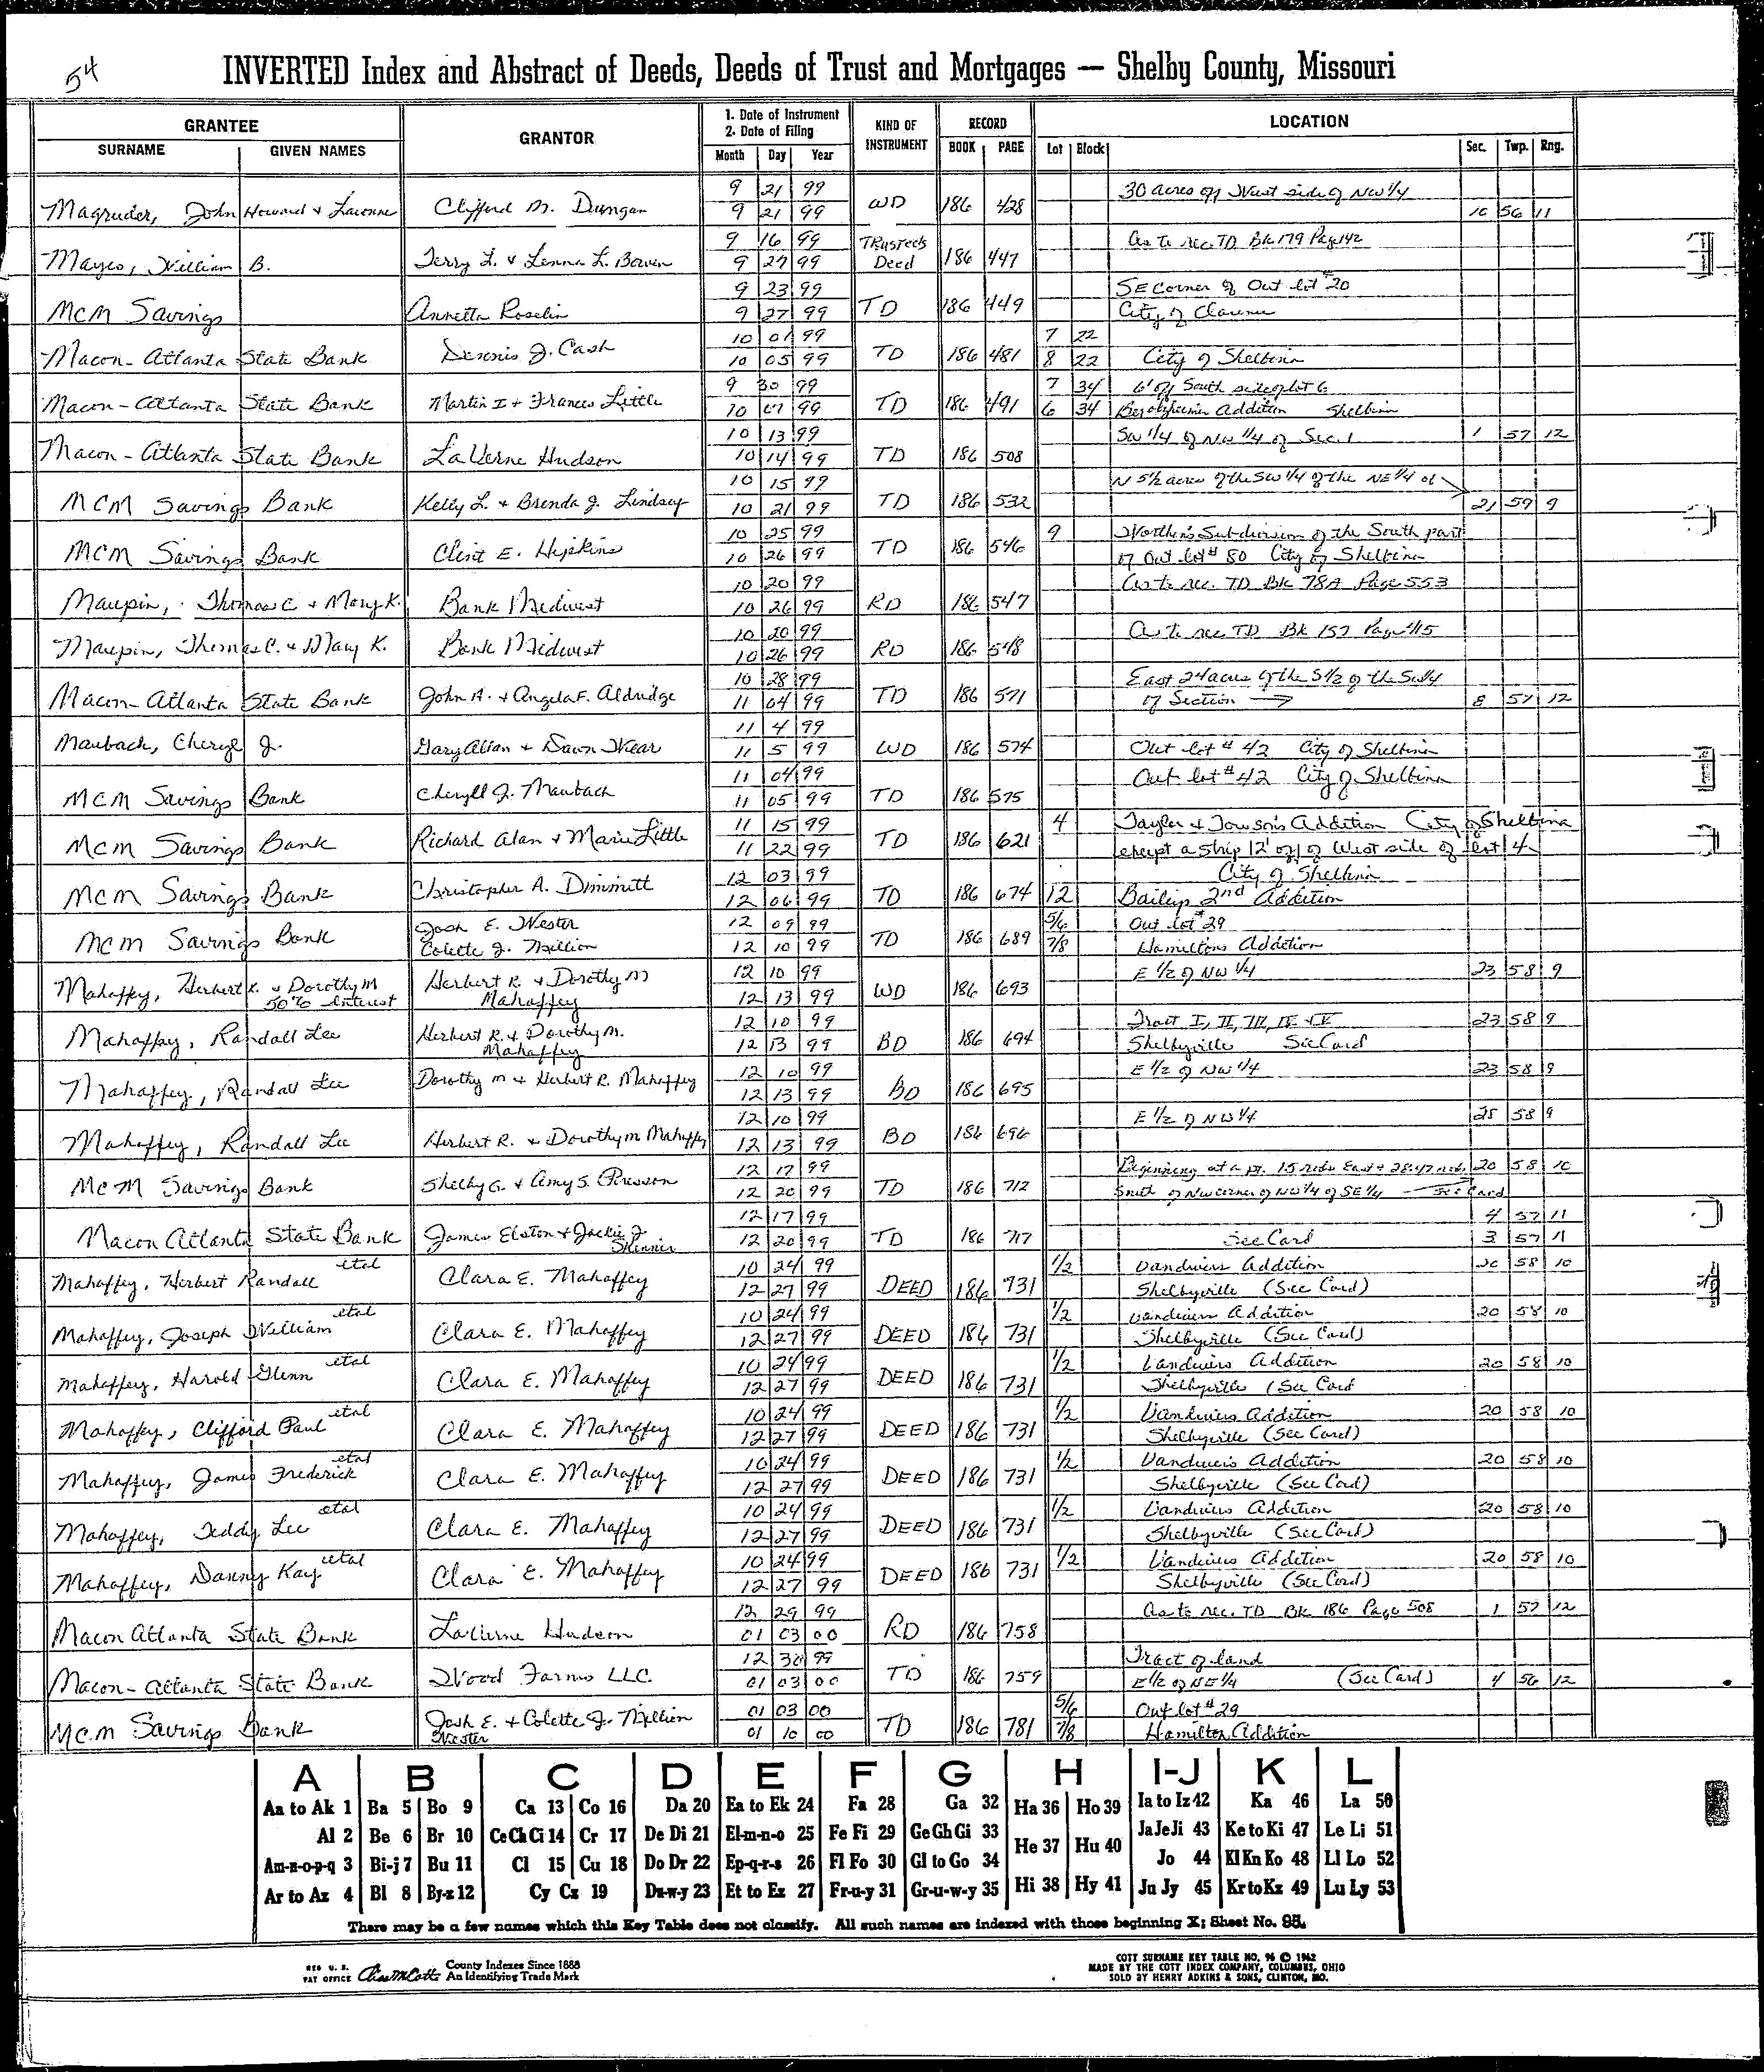 54
INVERTED Index and Abstract of Deeds, Deeds of Trust and Mortgages — Shelby County, Missouri
GRANTEE GRANTOR 1. Date of Instrument 2. Date of Filing KIND OF INSTRUMENT RECORD LOCATION
SURNAME GIVEN NAMES Month Day Year BOOK PAGE Lot Block Sec. Twp. Rng.
9 21 99 30 acres off West side of NW 1/4
Magruder, John Howard + Lavonne Clifford M. Dungan 9 21 99 WD 186 428 10 56 11
9 16 99 Trustees As to rec. TD Bk 179 Page 142
Mayes, William B. Terry L. + Lenna L. Bowen 9 27 99 Deed 186 447
9 23 99 SE Corner of Out lot #20
MCM Savings Annetta Roselin 9 27 99 TD 186 449 City of Clarence
10 01 99 7 22
Macon-Atlanta State Bank Dennis J. Cash 10 05 99 TD 186 481 8 22 City of Shelbina
9 30 99 7 34 6' off South side of lot 6
Macon-Atlanta State Bank Martin I + Frances Little 10 07 99 TD 186 491 6 34 Addition Shelbina
10 13 99 SW 1/4 of NW 1/4 of Sec. 1 1 57 12
Macon-Atlanta State Bank LaVerne Hudson 10 14 99 TD 186 508
10 15 99 N 5 1/2 acres of the SW 1/4 of the NE 1/4 of
MCM Savings Bank Kelly L. + Brenda J. Lindsey 10 21 99 TD 186 532 21 59 9
10 25 99 9 Worthen's Subdivision of the South part
MCM Savings Bank Clint E. Hipkins 10 26 99 TD 186 546 of Out lot # 80 City of Shelbina
10 20 99 As to rec. TD Bk 78A Page 553
Maupin, Thomas C. + Mary K. Bank Midwest 10 26 99 RD 186 547
10 20 99 As to rec TD Bk 157 Page 415
Maupin, Thomas C. + Mary K. Bank Midwest 10 26 99 RD 186 548
10 28 99 East 24 acres of the S 1/2 of the SW 1/4
Macon-Atlanta State Bank John A. + Angela F. Aldridge 11 04 99 TD 186 571 of Section 8 57 12
11 4 99
Maubach, Cheryl J. Gary Allan + Dawn Wear 11 5 99 WD 186 574 Out lot # 42 City of Shelbina
11 04 99 Out lot #42 City of Shelbina
MCM Savings Bank Cheryll J. Maubach 11 05 99 TD 186 575
11 15 99 4 Taylor + Towson's Addition City of Shelbina
MCM Savings Bank Richard Alan + Marie Little 11 22 99 TD 186 621 except a strip 12' off of West side of lot 4
12 03 99 City of Shelbina
MCM Savings Bank Christopher A. Dimmitt 12 06 99 TD 186 674 12 Baileys 2nd Addition
Josh E. Wester 12 09 99 5/6 Out lot #29
MCM Savings Bank Colette J. Million 12 10 99 TD 186 689 7/8 Hamiltons Addition
12 10 99 E 1/2 of NW 1/4 23 58 9
Mahaffey, Herbert R. + Dorothy M 50% Interest Herbert R. + Dorothy M Mahaffey 12 13 99 WD 186 693
12 10 99 Tract I, II, III, IV + V 23 58 9
Mahaffey, Randall Lee Herbert R. + Dorothy M. Mahaffey 12 13 99 BD 186 694 Shelbyville See Card
12 10 99 E 1/2 of NW 1/4 23 58 9
Mahaffey, Randall Lee Dorothy M + Herbert R. Mahaffey 12 13 99 BD 186 695
12 10 99 E 1/2 of NW 1/4 25 58 9
Mahaffey, Randall Lee Herbert R. + Dorothy M Mahaffey 12 13 99 BD 186 696
12 17 99 Beginning at a pt. 15 rods East + 28.47 rods 20 58 10
MCM Savings Bank Shelby G. + Amy S. Presson 12 20 99 TD 186 712 South of NW corner of NW 1/4 of SE 1/4 See Card
12 17 99 4 57 11
Macon Atlanta State Bank James Elston + Jackie J Skinner 12 20 99 TD 186 717 See Card 3 57 11
etal 10 24 99 1/2 Vandivers Addition 20 58 10
Mahaffey, Herbert Randall Clara E. Mahaffey 12 27 99 DEED 186 731 Shelbyville (See Card)
etal 10 24 99 1/2 Vandivers Addition 20 58 10
Mahaffey, Joseph William Clara E. Mahaffey 12 27 99 DEED 186 731 Shelbyville (See Card)
etal 10 24 99 1/2 Vandivers Addition 20 58 10
Mahaffey, Harold Glenn Clara E. Mahaffey 12 27 99 DEED 186 731 Shelbyville (See Card
etal 10 24 99 1/2 Vandivers Addition 20 58 10
Mahaffey, Clifford Paul Clara E. Mahaffey 12 27 99 DEED 186 731 Shelbyville (See Card)
etal 10 24 99 1/2 Vandivers Addition 20 58 10
Mahaffey, James Frederick Clara E. Mahaffey 12 27 99 DEED 186 731 Shelbyville (See Card)
etal 10 24 99 1/2 Vandivers Addition 20 58 10
Mahaffey, Teddy Lee Clara E. Mahaffey 12 27 99 DEED 186 731 Shelbyville (See Card)
etal 10 24 99 1/2 Vandivers Addition 20 58 10
Mahaffey, Danny Kay Clara E. Mahaffey 12 27 99 DEED 186 731 Shelbyville (See Card)
12 29 99 As to rec. TD Bk 186 Page 508 1 57 12
Macon Atlanta State Bank LaVerne Hudson 01 03 00 RD 186 758
12 30 99 Tract of land
Macon-Atlanta State Bank Wood Farms LLC. 01 03 00 TD 186 759 E 1/2 of NE 1/4 (See Card) 4 56 12
01 03 00 5/6 Out lot #29
MCM Savings Bank Josh E. + Colette J. Million Wester 01 10 00 TD 186 781 7/8 Hamilton Addition
A B C D E F G H I-J K L
Aa to Ak 1 Ba 5 Bo 9 Ca 13 Co 16 Da 20 Ea to Ek 24 Fa 28 Ga 32 Ha 36 Ho 39 Ia to Iz 42 Ka 46 La 50
Al 2 Be 6 Br 10 Ce Ch Ci 14 Cr 17 De Di 21 El-m-n-o 25 Fe Fi 29 Ge Gh Gi 33 He 37 Hu 40 Ja Je Ji 43 Ke to Ki 47 Le Li 51
Am-n-o-p-q 3 Bi-j 7 Bu 11 Cl 15 Cu 18 Do Dr 22 Ep-q-r-s 26 Fl Fo 30 Gl to Go 34 Jo 44 Kl Kn Ko 48 Ll Lo 52
Ar to Az 4 Bl 8 By-z 12 Cy Cz 19 Du-w-y 23 Et to Ez 27 Fr-u-y 31 Gr-u-w-y 35 Hi 38 Hy 41 Ju Jy 45 Kr to Kz 49 Lu Ly 53
There may be a few names which this Key Table does not classify. All such names are indexed with those beginning X; Sheet No. 95.
REG U. S. PAT OFFICE County Indexes Since 1888 An Identifying Trade Mark
COTT SURNAME KEY TABLE NO. 96 © 1962
MADE BY THE COTT INDEX COMPANY, COLUMBUS, OHIO
SOLD BY HENRY ADKINS & SONS, CLINTON, MO.